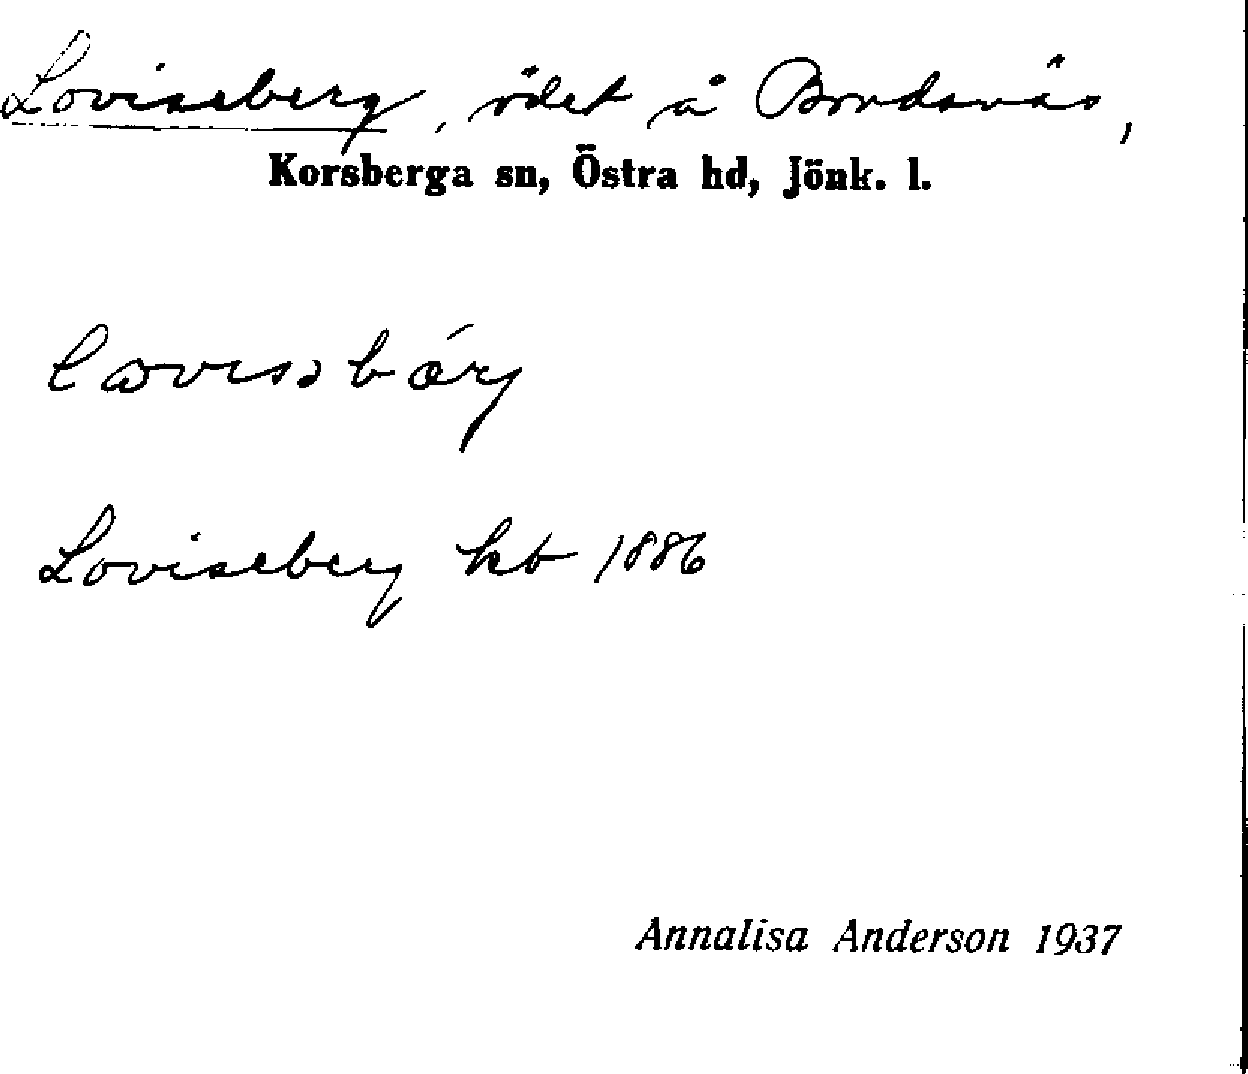 Loviseberg, ödet å Bordsnäs,
Korsberga sn, Östra hd, Jönk. l.
Loviseberg kb 1886
Annalisa Anderson 1937